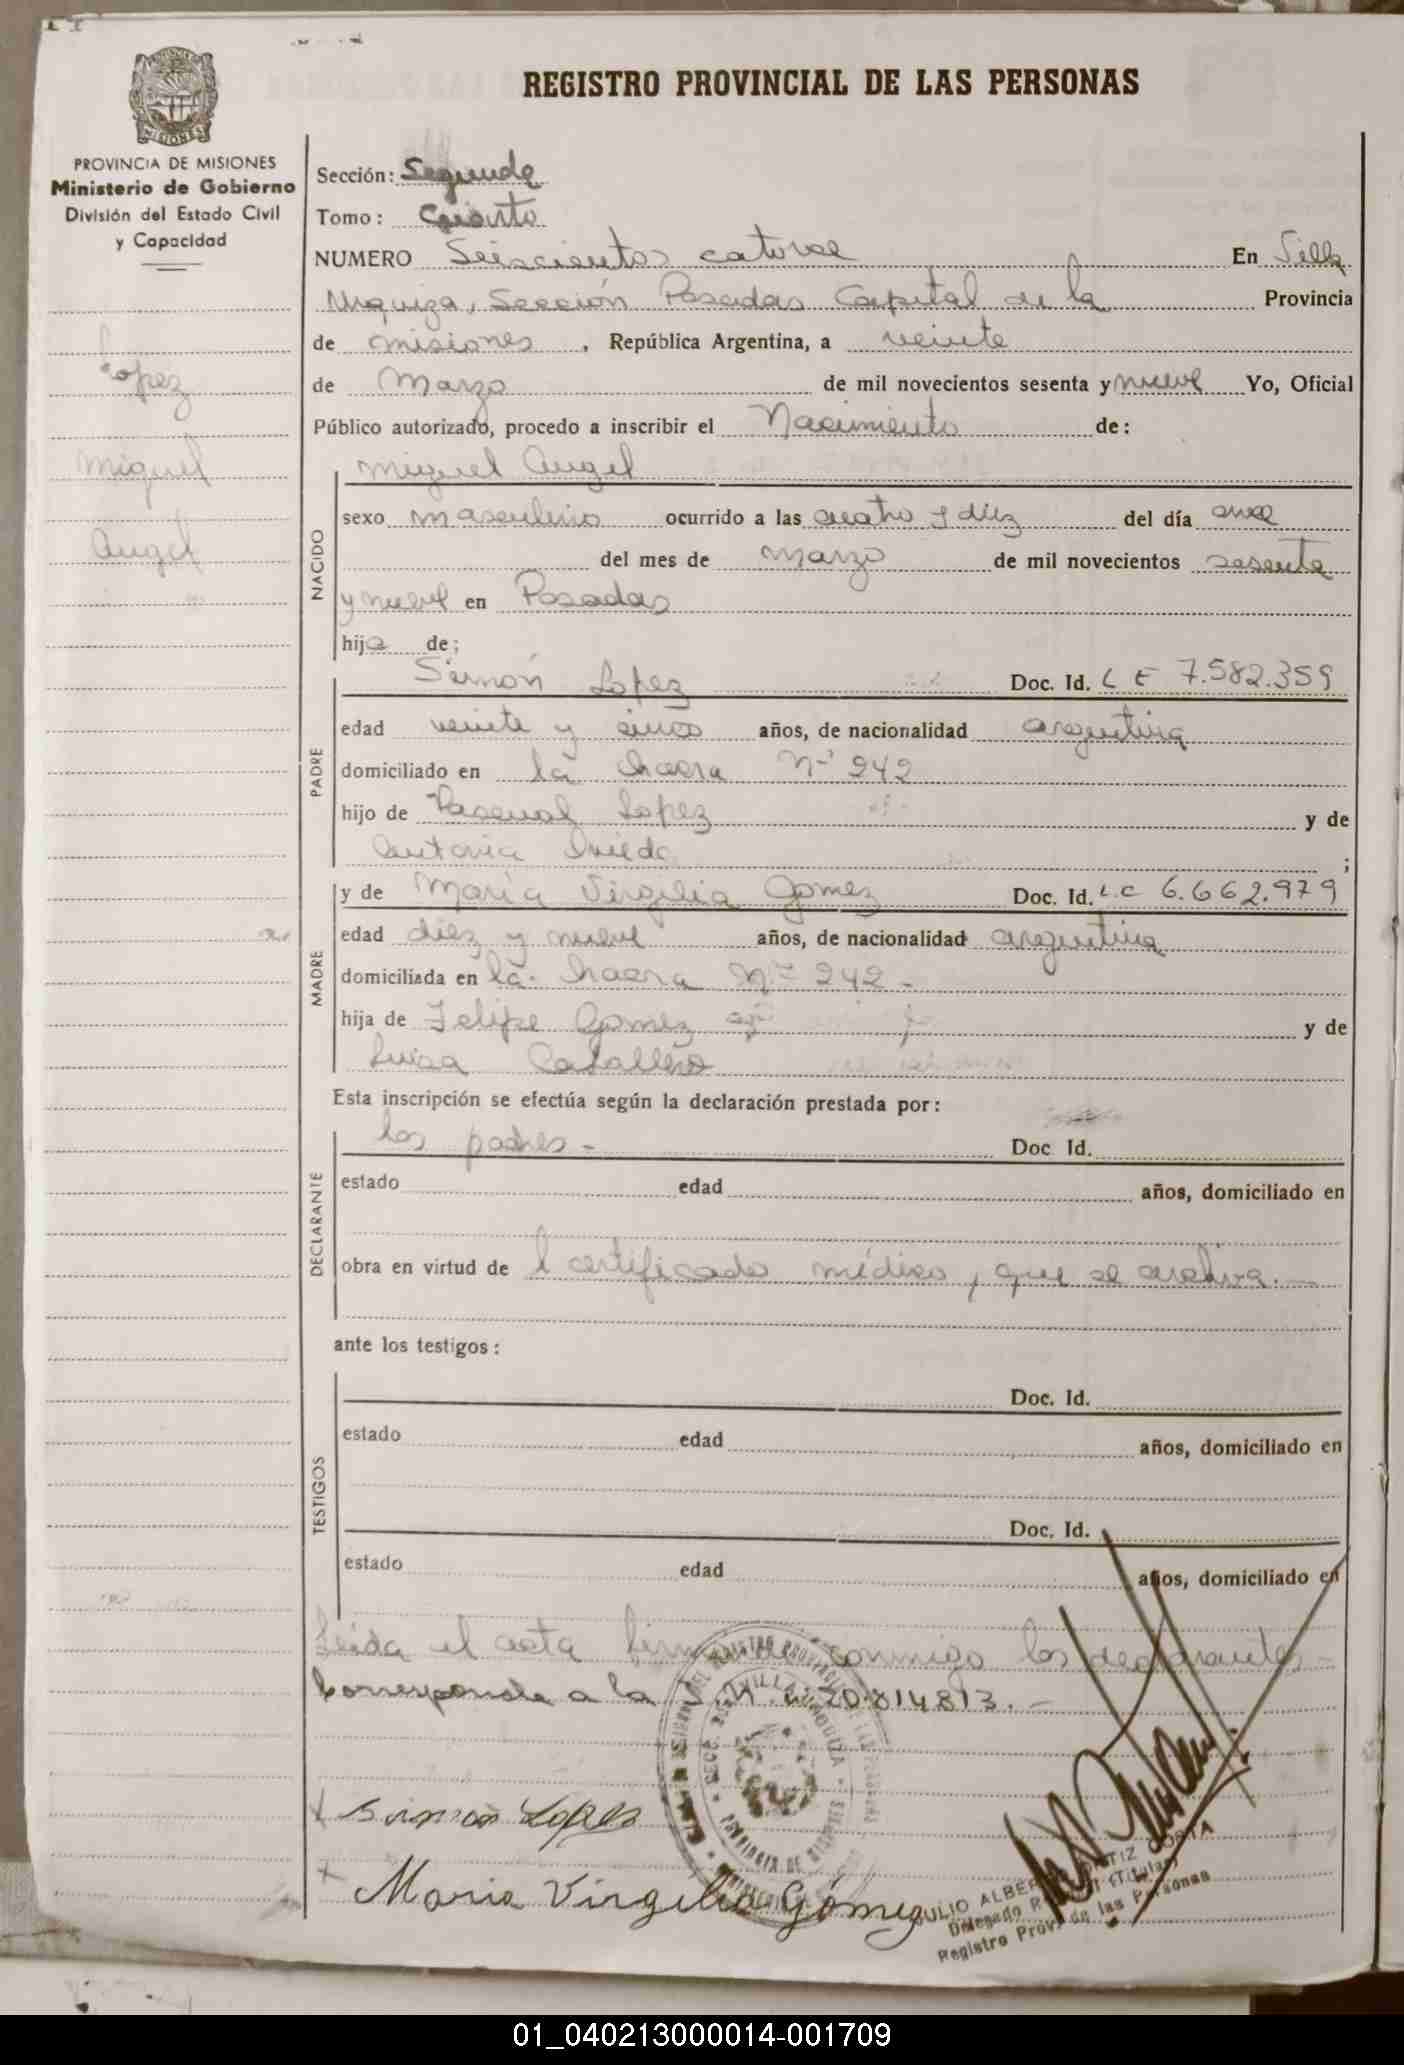 REGISTRO PROVINCIAL DE LAS PERSONAS
MISIONES
PROVINCIA DE MISIONES
Ministerio de Gobierno
División del Estado Civil
y Capacidad
Lopez
Miguel
Angel
Sección: Segunda
Tomo: Cuarto
NUMERO Seiscientos catorce En Villa
Urquiza, Sección Posadas Capital de la Provincia
de Misiones, República Argentina, a veinte
de Marzo de mil novecientos sesenta y nueve Yo, Oficial
Público autorizado, procedo a inscribir el Nacimiento de:
NACIDO
Miguel Angel
sexo masculino ocurrido a las cuatro y diez del día once
del mes de marzo de mil novecientos sesenta
y nueve en Posadas
hijo de;
PADRE
Simón Lopez Doc. Id. L E 7.582.359
edad veinte y cinco años, de nacionalidad argentina
domiciliado en la chacra Nº 242
hijo de Pascual Lopez y de
Antonia Oviedo ;
MADRE
y de María Virgilia Gomez Doc. Id. L.C 6.662.979
edad diez y nueve años, de nacionalidad argentina
domiciliada en la chacra Nº 242 -
hija de Felipe Gomez y de
Luisa Caballero
Esta inscripción se efectúa según la declaración prestada por:
DECLARANTE
los padres - Doc. Id.
estado edad años, domiciliado en
obra en virtud de l certificado médico, que se archiva.-
ante los testigos:
TESTIGOS
Doc. Id.
estado edad años, domiciliado en
Doc. Id.
estado edad años, domiciliado en
Leída el acta firman conmigo los declarantes -
Corresponde a la 20.814.813. -
Simon Lopez
Maria Virgilia Gómez
VILLA URQUIZA
PROVINCIA DE MISIONES
JULIO ALBERTO ORTIZ COSTA
Delegado (Titular)
Registro Prov. de las Personas
01_040213000014-001709